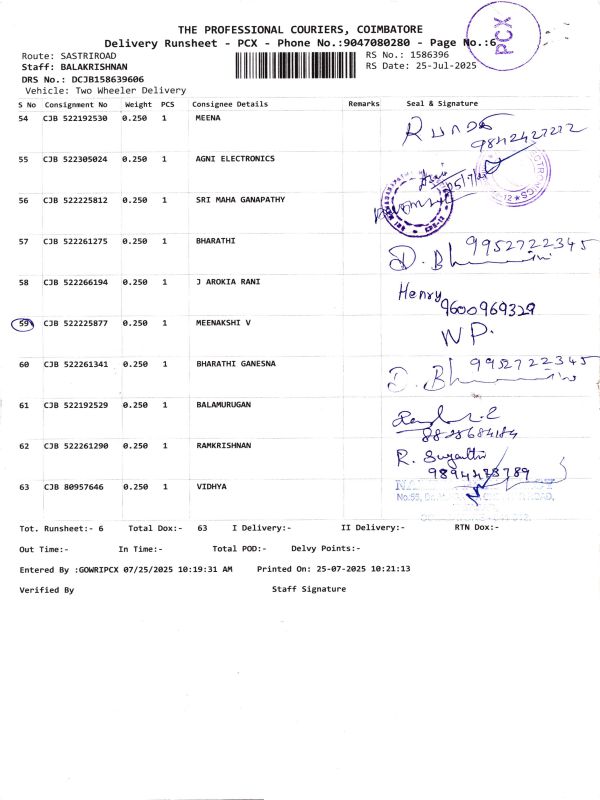 THE PROFESSIONAL COURIERS, COIMBATORE
Delivery Runsheet - PCX - Phone No.:9047080280 - Page No.:6
PCX
Route: SASTRIROAD RS No.: 1586396
Staff: BALAKRISHNAN RS Date: 25-Jul-2025
DRS No.: DCJB158639606
Vehicle: Two Wheeler Delivery
S No Consignment No Weight PCS Consignee Details Remarks Seal & Signature
54 CJB 522192530 0.250 1 MEENA
9842427272
55 CJB 522305024 0.250 1 AGNI ELECTRONICS
56 CJB 522225812 0.250 1 SRI MAHA GANAPATHY
57 CJB 522261275 0.250 1 BHARATHI 9952722345
58 CJB 522266194 0.250 1 J AROKIA RANI Henry
9600969329
59 CJB 522225877 0.250 1 MEENAKSHI V NP.
60 CJB 522261341 0.250 1 BHARATHI GANESNA 9952722345
61 CJB 522192529 0.250 1 BALAMURUGAN
62 CJB 522261290 0.250 1 RAMKRISHNAN R.
63 CJB 80957646 0.250 1 VIDHYA
Tot. Runsheet:- 6 Total Dox:- 63 I Delivery:- II Delivery:- RTN Dox:-
Out Time:- In Time:- Total POD:- Delvy Points:-
Entered By :GOWRIPCX 07/25/2025 10:19:31 AM Printed On: 25-07-2025 10:21:13
Verified By Staff Signature